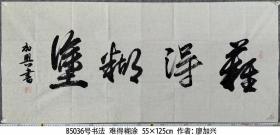 難得糊塗
加興書
85036号书法 难得糊涂 55×125cm 作者：廖加兴